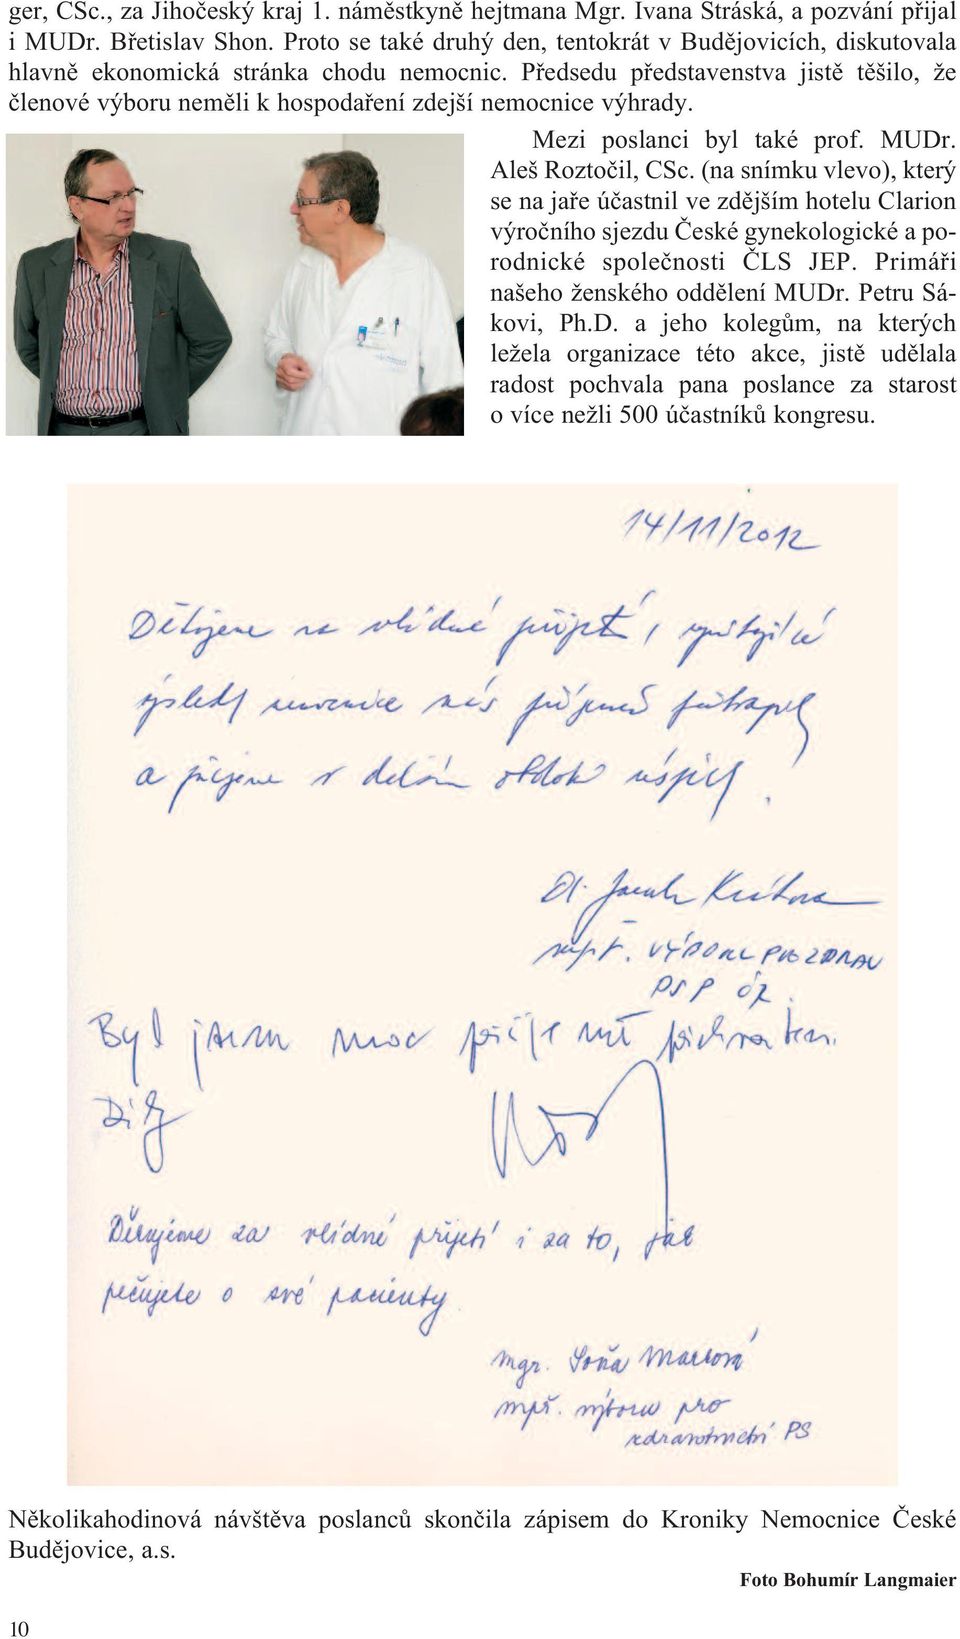 ger, CSc., za Jihočeský kraj 1. náměstkyně hejtmana Mgr. Ivana Stráská, a pozvání přijal
i MUDr. Břetislav Shon. Proto se také druhý den, tentokrát v Budějovicích, diskutovala
hlavně ekonomická stránka chodu nemocnic. Předsedu představenstva jistě těšilo, že
členové výboru neměli k hospodaření zdejší nemocnice výhrady.
Mezi poslanci byl také prof. MUDr.
Aleš Roztočil, CSc. (na snímku vlevo), který
se na jaře účastnil ve zdějším hotelu Clarion
výročního sjezdu České gynekologické a po-
rodnické společnosti ČLS JEP. Primáři
našeho ženského oddělení MUDr. Petru Sá-
kovi, Ph.D. a jeho kolegům, na kterých
ležela organizace této akce, jistě udělala
radost pochvala pana poslance za starost
o více nežli 500 účastníků kongresu.
14/11/2012
Děkujeme za vlídné přijetí, vynikající
výsledky nemocnice nás příjemně překvapily
a přejeme v dalším období úspěch.
výboru pro zdrav
PSP ČR.
Byl jsem moc příjemně překvapen.
Díky
Děkujeme za vlídné přijetí i za to, jak
pečujete o své pacienty.
Mgr. Soňa Marková
mpř. výboru pro
zdravotnictví PS
Několikahodinová návštěva poslanců skončila zápisem do Kroniky Nemocnice České
Budějovice, a.s.
Foto Bohumír Langmaier
10